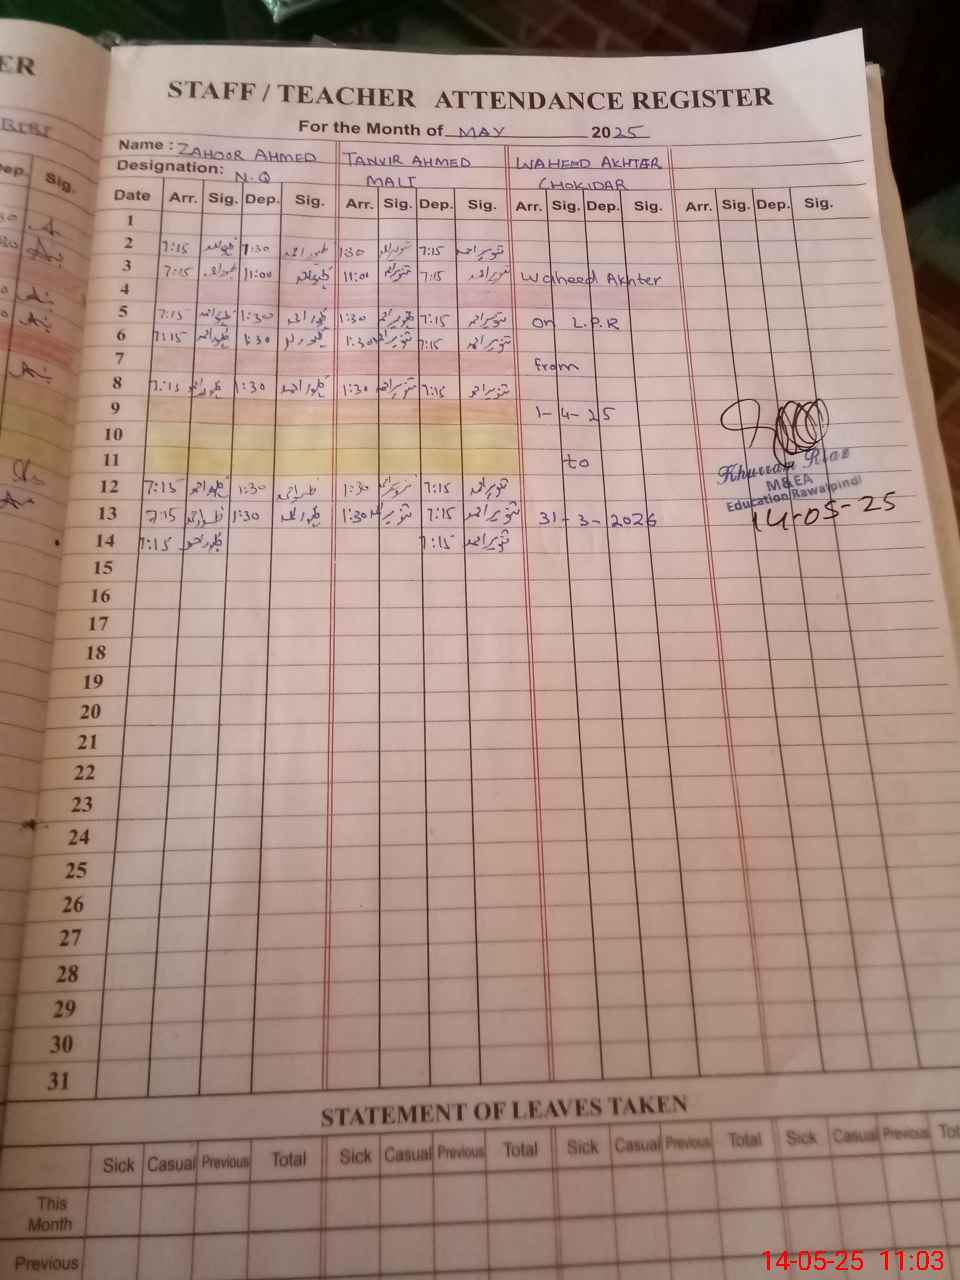 ER
STAFF / TEACHER ATTENDANCE REGISTER
For the Month of MAY 2025
Name : ZAHOOR AHMED TANVIR AHMED WAHEED AKHTAR
Designation: N.Q MALI CHOKIDAR
ep. Sig.
Date Arr. Sig. Dep. Sig. Arr. Sig. Dep. Sig. Arr. Sig. Dep. Sig. Arr. Sig. Dep. Sig.
1
2 7:15 1:30 ظہور احمد 1:30 7:15 تنویر احمد
3 7:15 11:00 11:00 7:15 Waheed Akhter
4
5 7:15 1:30 1:30 7:15 تنویر احمد on L.P.R
6 7:15 1:30 1:30 7:15 تنویر احمد
7 from
8 7:15 1:30 ظہور احمد 1:30 تنویر احمد 7:15 تنویر احمد
9 1-4-25
10
11 to
Khurram Riaz
M&EA
Education Rawalpindi
14-05-25
12 7:15 ظہور احمد 1:30 1:30 7:15 تنویر احمد
13 7:15 ظہور احمد 1:30 ظہور احمد 1:30 تنویر احمد 7:15 تنویر احمد 31-3-2026
14 7:15 ظہور احمد 7:15 تنویر احمد
15
16
17
18
19
20
21
22
23
24
25
26
27
28
29
30
31
STATEMENT OF LEAVES TAKEN
Sick Casual Previous Total Sick Casual Previous Total Sick Casual Previous Total Sick Casual Previous Tot
This
Month
Previous
14-05-25 11:03